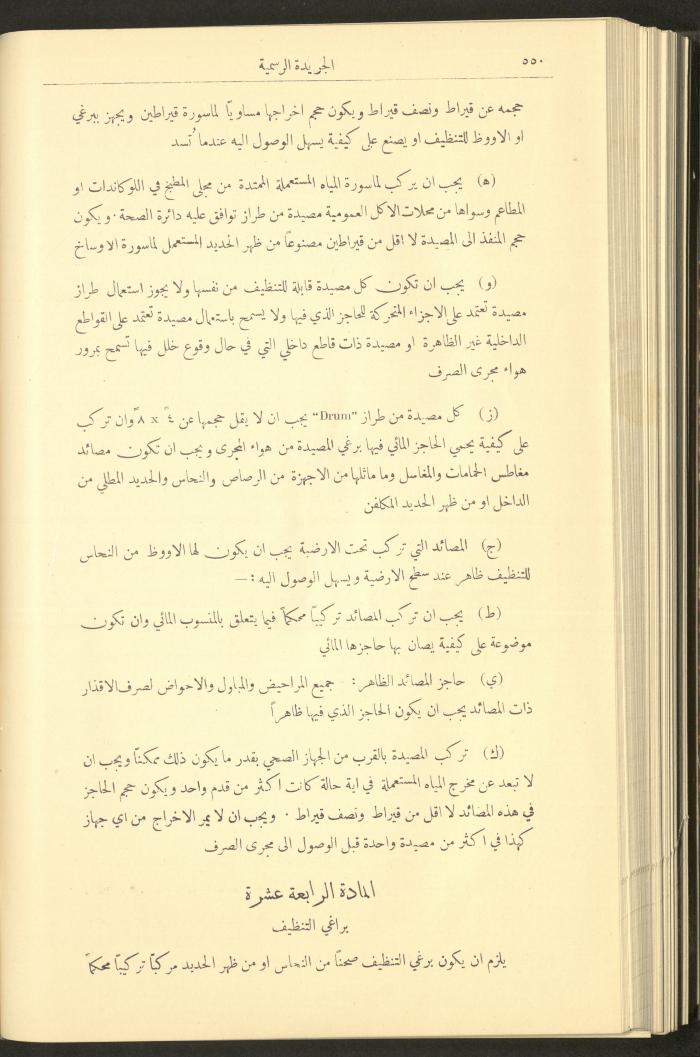 ٥٥٠
الجريدة الرسمية
حجمه عن قيراط ونصف قيراط ويكون حجم اخراجها مساوياً لماسورة قيراطين ويجهز ببرغي
او الاووظ للتنظيف او يصنع على كيفية يسهل الوصول اليه عندما تُسد
(ه) يجب ان يركب لماسورة المياه المستعملة الممتدة من مجلى المطبخ في اللوكاندات او
المطاعم وسواها من محلات الاكل العمومية مصيدة من طراز توافق عليه دائرة الصحة . ويكون
حجم المنفذ الى المصيدة لا اقل من قيراطين مصنوعاً من ظهر الحديد المستعمل لماسورة الاوساخ
(و) يجب ان تكون كل مصيدة قابلة للتنظيف من نفسها ولا يجوز استعمال طراز
مصيدة تعتمد على الاجزاء المتحركة للحاجز الذي فيها ولا يسمح باستعمال مصيدة تعتمد على القواطع
الداخلية غير الظاهرة او مصيدة ذات قاطع داخلي التي في حال وقوع خلل فيها تسمح بمرور
هواء مجرى الصرف
(ز) كل مصيدة من طراز "Drum" يجب ان لا يقل حجمها عن ٤ً x ٨ً وان تركب
على كيفية يحمي الحاجز المائي فيها برغي المصيدة من هواء المجرى ويجب ان تكون مصائد
مغاطس الحمامات والمغاسل وما ماثلها من الاجهزة من الرصاص والنحاس والحديد المطلي من
الداخل او من ظهر الحديد المكلفن
(ح) المصائد التي تركب تحت الارضية يجب ان يكون لها الاووظ من النحاس
للتنظيف ظاهر عند سطح الارضية ويسهل الوصول اليه :—
(ط) يجب ان تركب المصائد تركيباً محكماً فيما يتعلق بالمنسوب المائي وان تكون
موضوعة على كيفية يصان بها حاجزها المائي
(ي) حاجز المصائد الظاهر : - جميع المراحيض والمباول والاحواض لصرف الاقذار
ذات المصائد يجب ان يكون الحاجز الذي فيها ظاهراً
(ك) تركب المصيدة بالقرب من الجهاز الصحي بقدر ما يكون ذلك ممكناً ويجب ان
لا تبعد عن مخرج المياه المستعملة في اية حالة كانت اكثر من قدم واحد ويكون حجم الحاجز
في هذه المصائد لا اقل من قيراط ونصف قيراط . ويجب ان لا يمر الاخراج من اي جهاز
كهذا في اكثر من مصيدة واحدة قبل الوصول الى مجرى الصرف
المادة الرابعة عشرة
براغي التنظيف
يلزم ان يكون برغي التنظيف صحناً من النحاس او من ظهر الحديد مركباً تركيباً محكماً